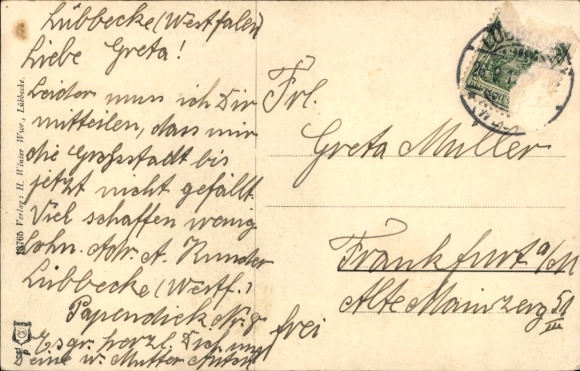 Lübbecke (Westfalen)
Liebe Greta!
Leider muss ich Dir
mitteilen, dass mir
die Großstadt bis
jetzt nicht gefällt.
Viel schaffen wenig
Lohn. Adr. A. Kunder
Lübbecke (Westf.)
Papendiek Nr. 8
Es gr. herzl. Dich und
Deine w. Mutter Anton
Frl.
Greta Muller
Frankfurt a/M
Alte Mainzerg 51
III
frei
18765 Verlag: H. Winter Wwe., Lübbecke.